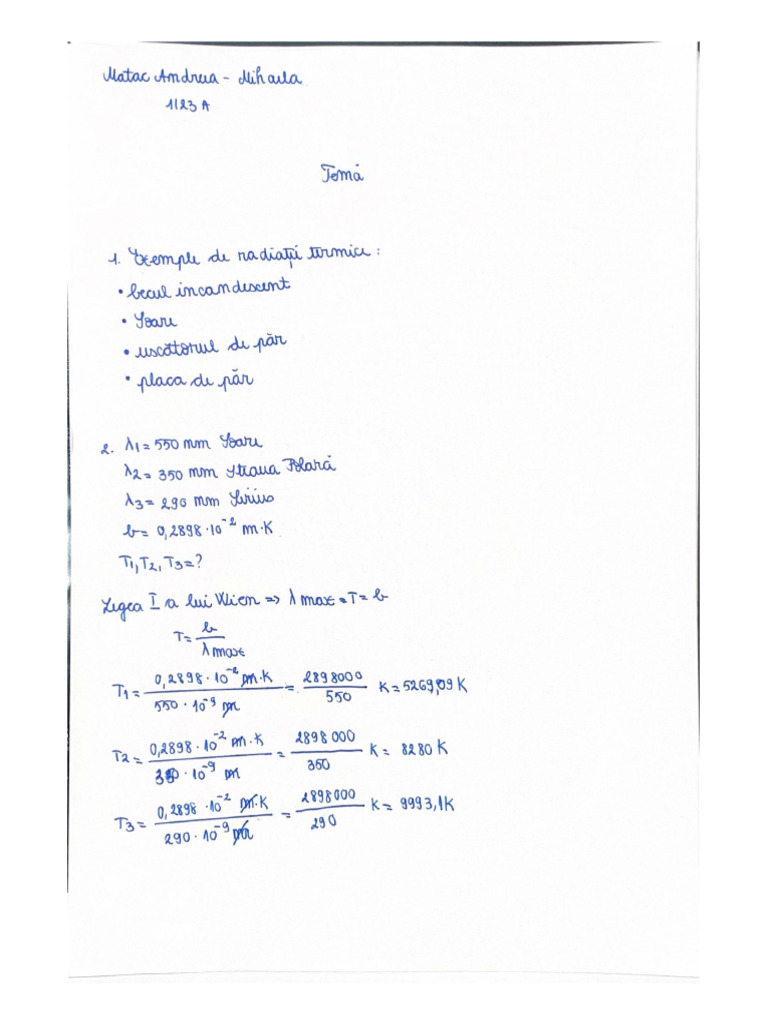 Matac Andreea - Mihaela
1123 A
Temă
1. Exemple de radiații termice :
• becul incandescent
• Soare
• uscătorul de păr
• placa de păr
2. λ1 = 550 nm Soare
λ2 = 350 nm Steaua Polară
λ3 = 290 nm Sirius
b = 0,2898 · 10⁻² m·K
T1, T2, T3 = ?
Legea I a lui Wien => λ max · T = b
T = b / λ max
T1 = 0,2898 · 10⁻² m·K / 550 · 10⁻⁹ m = 2898000 / 550 K = 5269,09 K
T2 = 0,2898 · 10⁻² m·K / 350 · 10⁻⁹ m = 2898 000 / 350 K = 8280 K
T3 = 0,2898 · 10⁻² m·K / 290 · 10⁻⁹ m = 2898000 / 290 K = 9993,1 K